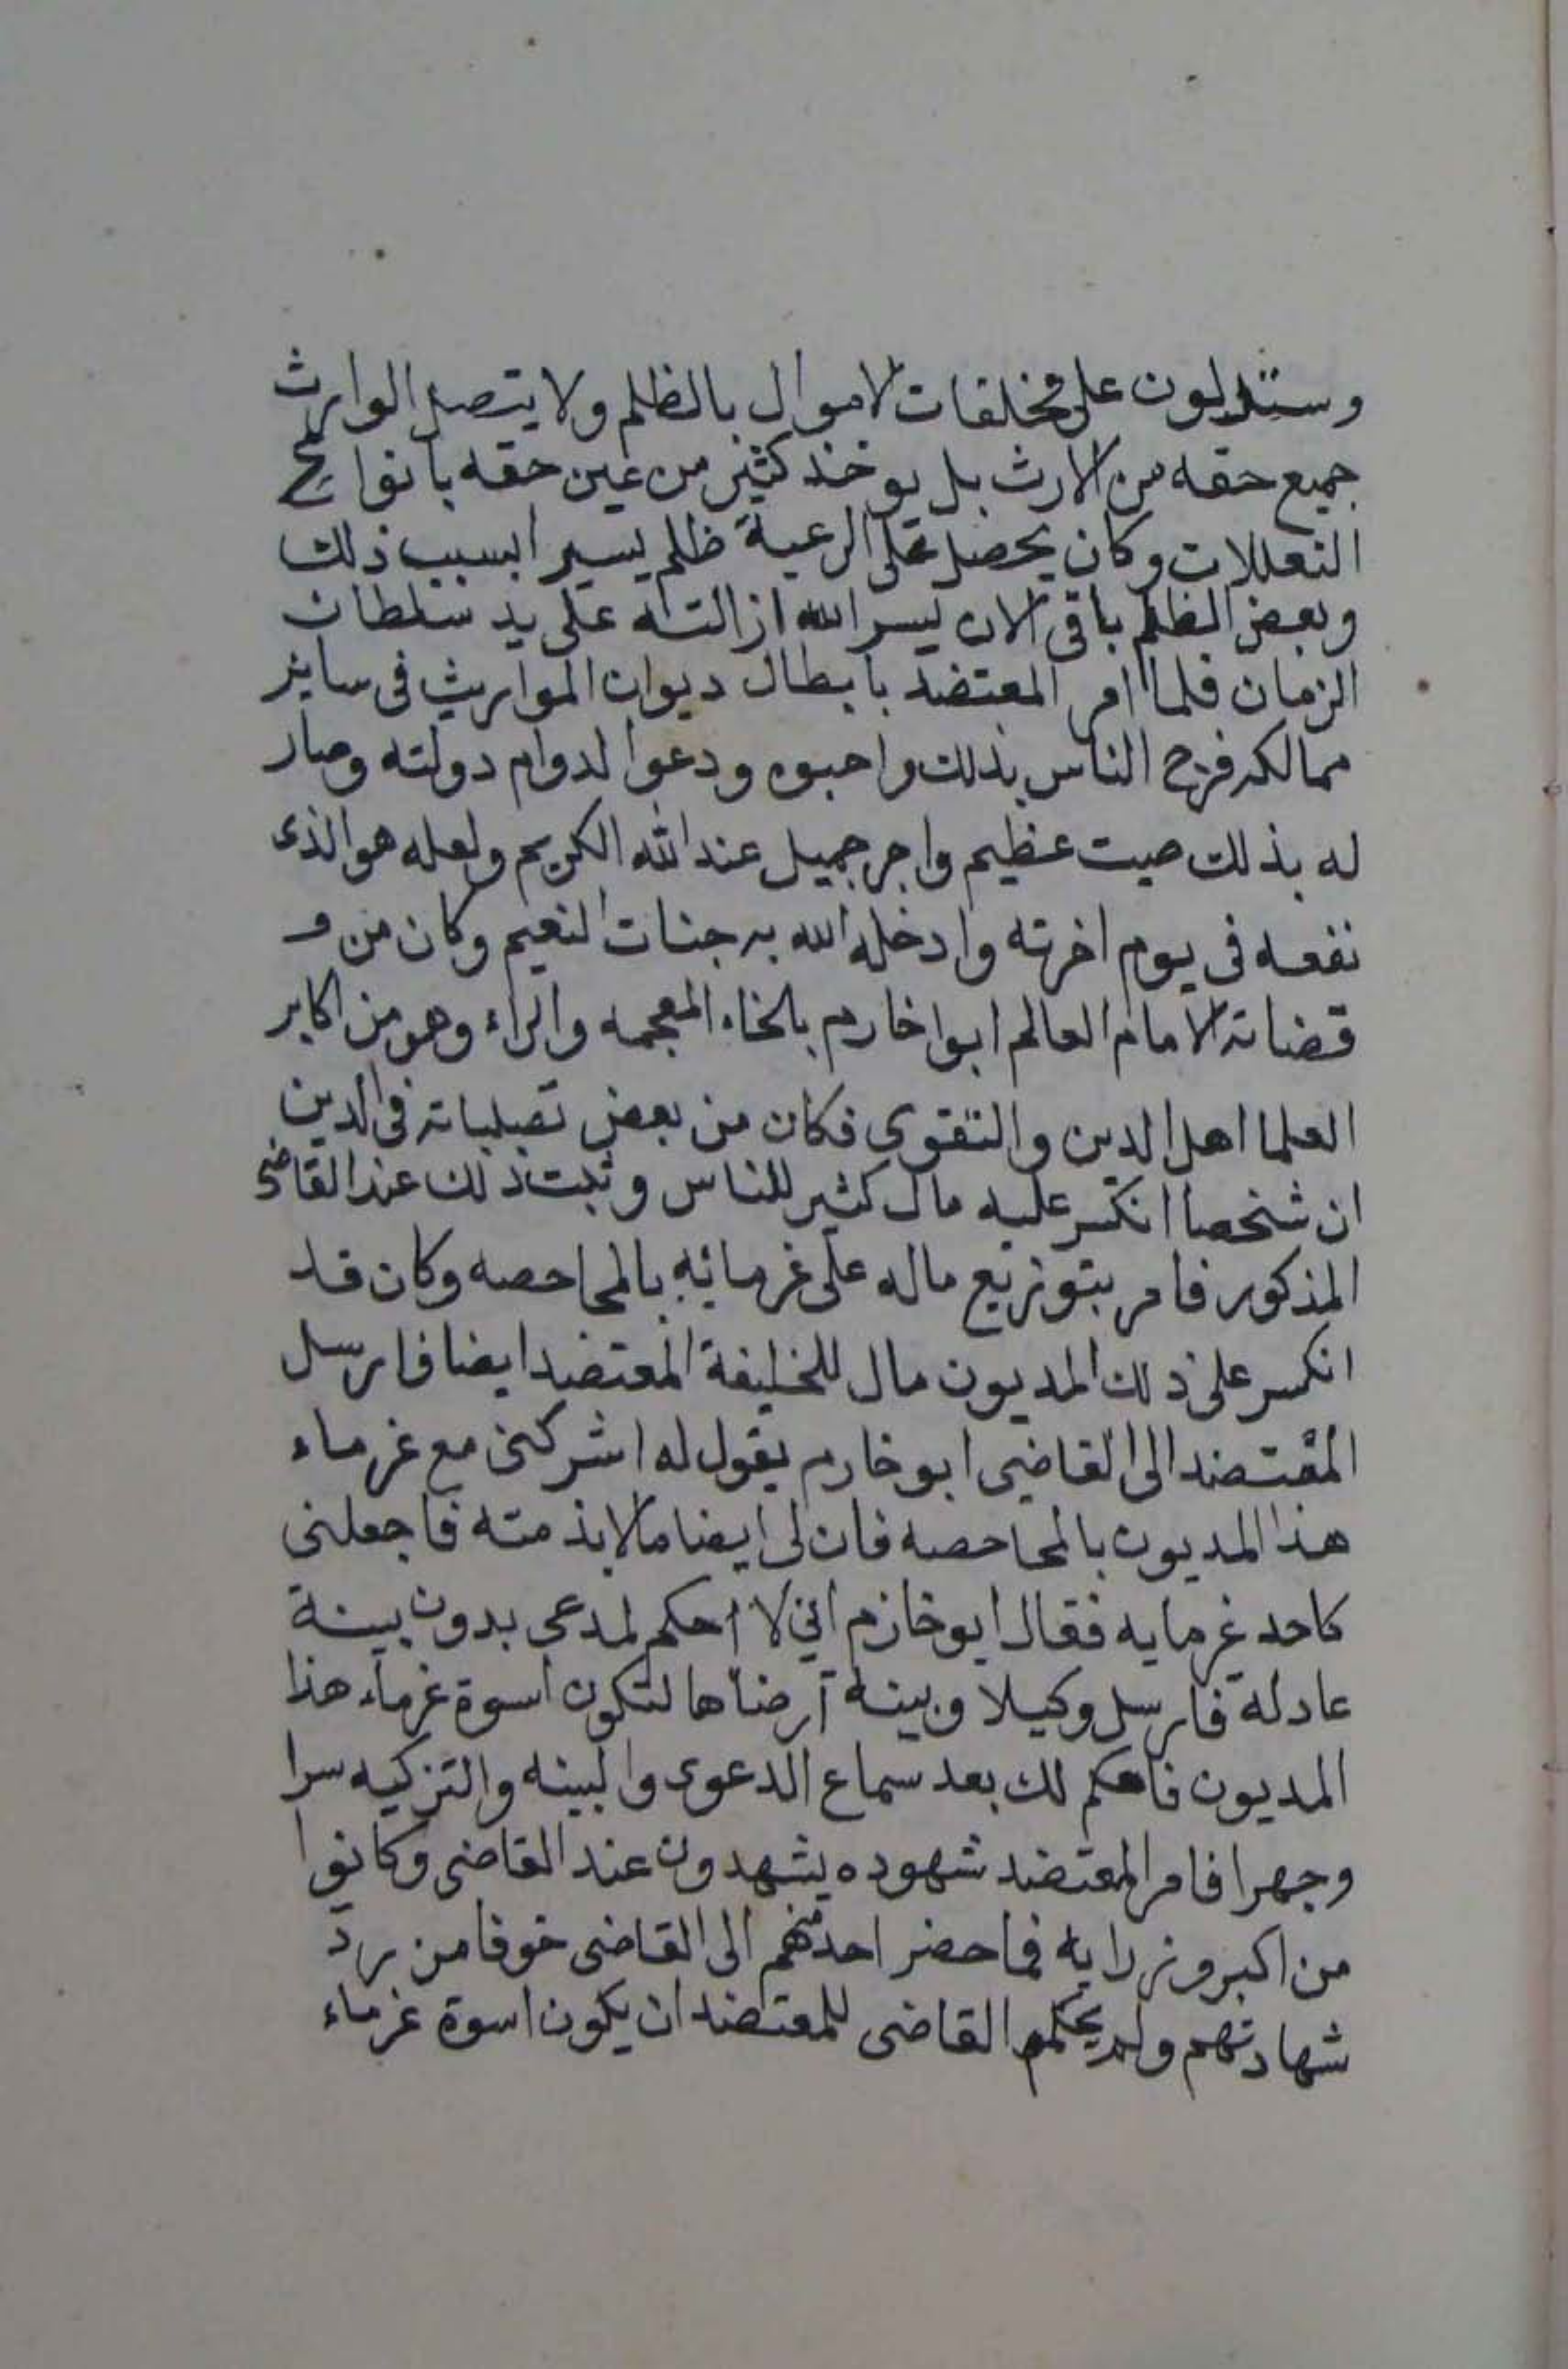 وستدلون على مخلفات الاموال بالظلم ولا يتصل الوارث
جميع حقه من الارث بل يوخذ كثير من عين حقه بانواع
التعللات وكان يحصل على الرعية ظلم يسيرا بسبب ذلك
وبعض الظلم باقى الان يسر الله ازالته على يد سلطان
الزمان فلما امر المعتضد بابطال ديوان المواريث فى ساير
ممالكه فرح الناس بذلك واحبوه ودعوا لدوام دولته وصار
له بذلك صيت عظيم واجر جميل عند الله الكريم ولعله هو الذى
نفعه فى يوم اخرته وادخله الله به جنات النعيم وكان من
قضاته الامام العالم ابوا خارم بالخاء المعجمه والراء وهو من اكابر
العلما اهل الدين والتقوى فكان من بعض تصلباته فى الدين
ان شخصا انكسر عليه مال كثير للناس وثبت ذلك عند القاضى
المذكور فامر بتوزيع ماله على غرمائه بالمحاصصه وكان قد
انكسر على ذلك المديون مال للخليفة المعتضد ايضا فارسل
المعتضد الى القاضى ابو خارم يقول له اشركنى مع غرماء
هذا المديون بالمحاصصه فان لى ايضا مالا بذمته فاجعلنى
كاحد غرمايه فقال ابو خازم انى لا احكم لمدعى بدون بينة
عادلة فارسل وكيلا وبينة ارضاها لتكون اسوة غرماء هذا
المديون فاحكم لك بعد سماع الدعوى والبينه والتزكيه سرا
وجهرا فامر المعتضد شهوده يشهدون عند القاضى وكانوا
من اكبر وزرايه فما حضر احد منهم الى القاضى خوفا من رد
شهادتهم ولم يحكم القاضى للمعتضد ان يكون اسوة غرماء